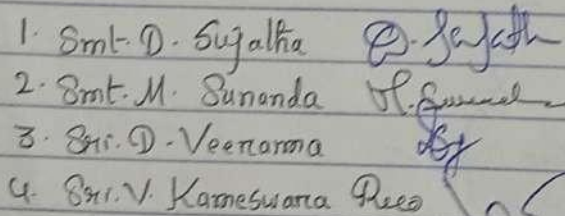 1. Smt. D. Sujatha D. Sujath
2. Smt. M. Sunanda M. Sunand
3. Sri. D. Veeranna
4. Sri. V. Kameswara Rao